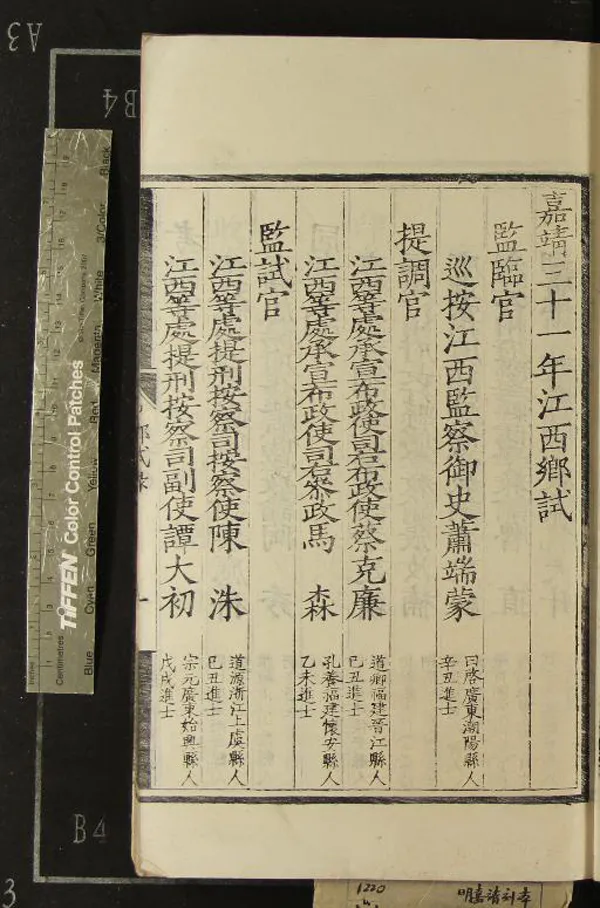 嘉靖三十一年江西鄉試
監臨官
巡按江西監察御史蕭端蒙
曰啓廣東潮陽縣人
辛丑進士
提調官
江西等處承宣布政使司右布政使蔡克廉
道卿福建晉江縣人
己丑進士
江西等處承宣布政使司右叅政馬森
孔養福建懷安縣人
乙未進士
監試官
江西等處提刑按察司按察使陳洙
道源浙江上虞縣人
己丑進士
江西等處提刑按察司副使譚大初
宗元廣東始興縣人
戊戌進士
A3
B4
B4
3
TIFFEN Color Control Patches
Blue
Cyan
Green
Yellow
Red
Magenta
White
3/Color
Black
Inches
Centimetres
1220
明嘉靖刻本